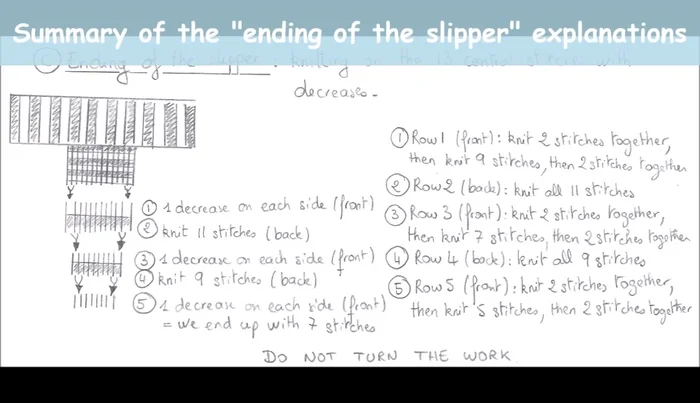 Summary of the "ending of the slipper" explanations
C Ending of the slipper : knitting on the 13 central stitches with
decreases.
① 1 decrease on each side (front)
② knit 11 stitches (back)
③ 1 decrease on each side (front)
④ knit 9 stitches (back)
⑤ 1 decrease on each side (front)
= we end up with 7 stitches
① Row 1 (front): knit 2 stitches together,
then knit 9 stitches, then 2 stitches together
② Row 2 (back): knit all 11 stitches
③ Row 3 (front): knit 2 stitches together,
then knit 7 stitches, then 2 stitches together
④ Row 4 (back): knit all 9 stitches
⑤ Row 5 (front): knit 2 stitches together,
then knit 5 stitches, then 2 stitches together
DO NOT TURN THE WORK